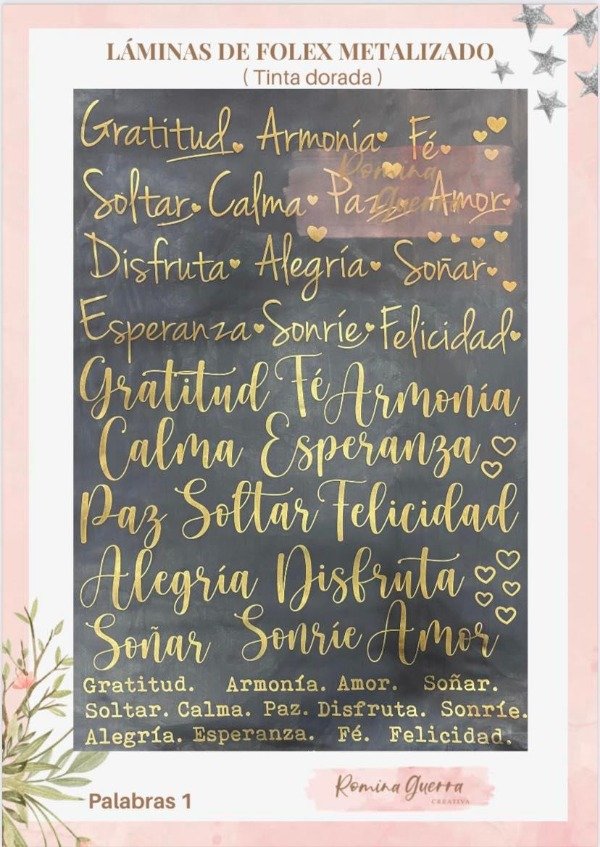 LÁMINAS DE FOLEX METALIZADO
( Tinta dorada )
Gratitud Armonía Fé
Romina
Soltar Calma Paz Amor
Guerra
Disfruta Alegría Soñar
Esperanza Sonríe Felicidad
Gratitud Fé Armonía
Calma Esperanza
Paz Soltar Felicidad
Alegría Disfruta
Soñar Sonríe Amor
Gratitud. Armonía. Amor. Soñar.
Soltar. Calma. Paz. Disfruta. Sonríe.
Alegría. Esperanza. Fé. Felicidad.
Romina Guerra
CREATIVA
Palabras 1